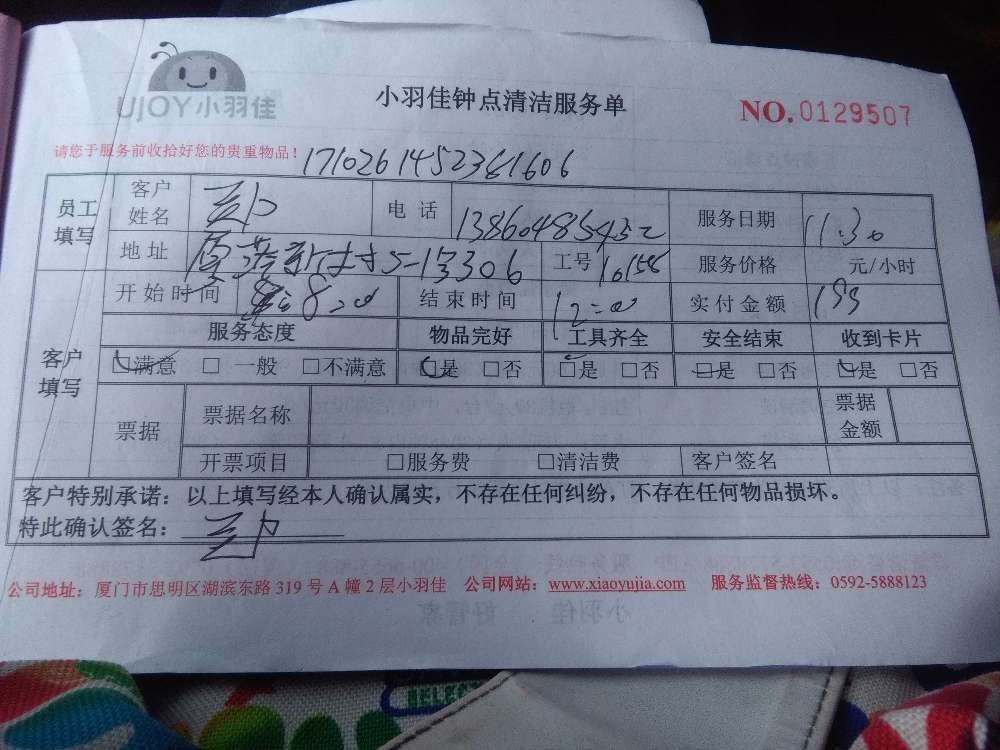 UJOY小羽佳
小羽佳钟点清洁服务单
NO.0129507
请您于服务前收拾好您的贵重物品!
员工填写 客户姓名 电话 服务日期 11.30
地址 工号 服务价格 元/小时
开始时间 8:00 结束时间 12:00 实付金额 199
客户填写 服务态度 物品完好 工具齐全 安全结束 收到卡片
□满意 □一般 □不满意 □是 □否 □是 □否 □是 □否 □是 □否
票据 票据名称 票据金额
开票项目 □服务费 □清洁费 客户签名
客户特别承诺：以上填写经本人确认属实，不存在任何纠纷，不存在任何物品损坏。
特此确认签名：
公司地址：厦门市思明区湖滨东路319号A幢2层小羽佳 公司网站：www.xiaoyujia.com 服务监督热线：0592-5888123
SELECT